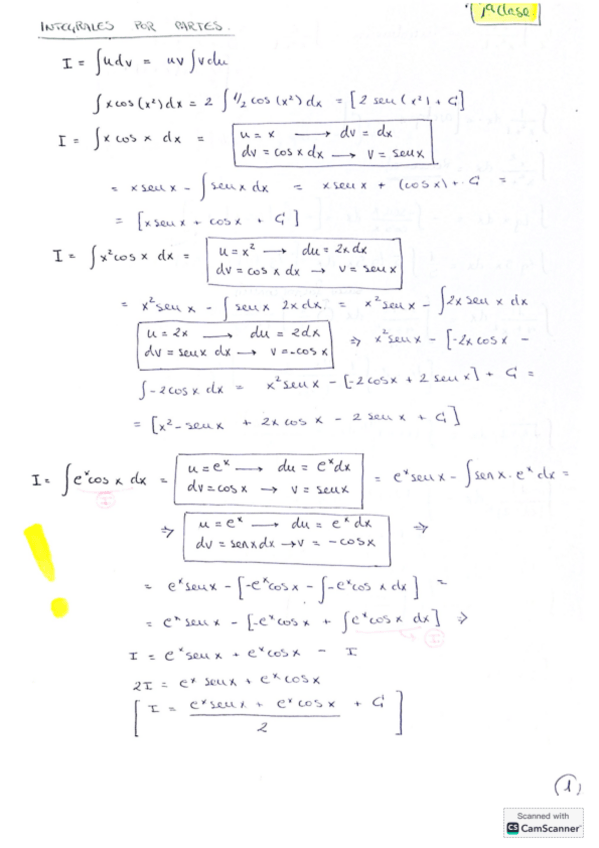 1ª clase.
INTEGRALES POR PARTES.
I = ∫udv = uv ∫vdu
∫xcos(x²)dx = 2 ∫1/2 cos(x²)dx = [2 sen(x²) + C]
I = ∫x cos x dx = u = x → dv = dx
dv = cosx dx → v = senx
= x senx - ∫senx dx = x senx + (cosx) + C =
= [x senx + cosx + C]
I = ∫x²cos x dx = u = x² → du = 2x dx
dv = cos x dx → v = senx
= x²senx - ∫senx 2x dx. = x²senx - ∫2x sen x dx
u = 2x → du = 2dx
dv = senx dx → v = -cosx
⇒ x²senx - [-2x cosx -
∫-2cosx dx = x²senx - [-2cosx + 2 senx] + C =
= [x² - senx + 2x cosx - 2 senx + C]
I = ∫eˣcos x dx = u = eˣ → du = eˣdx
dv = cosx → v = senx
= eˣsenx - ∫senx · eˣ dx =
I
⇒ u = eˣ → du = eˣ dx ⇒
dv = senxdx → v = -cosx
!
= eˣsenx - [-eˣcosx - ∫-eˣcos x dx] =
= eˣ senx - [-eˣcosx + ∫eˣcosx dx] ⇒
I
I = eˣsenx + eˣcosx - I
2I = eˣ senx + eˣ cosx
[I = eˣsenx + eˣ cosx / 2 + C]
1
Scanned with
CS CamScanner